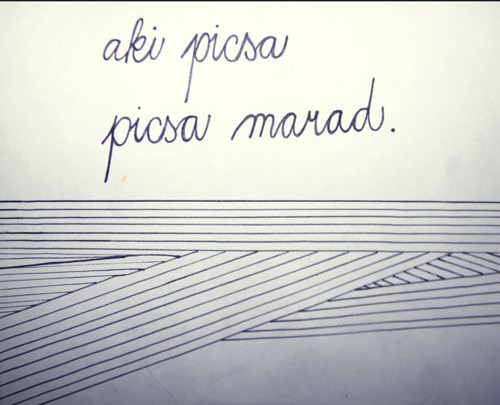 aki picsa
picsa marad.